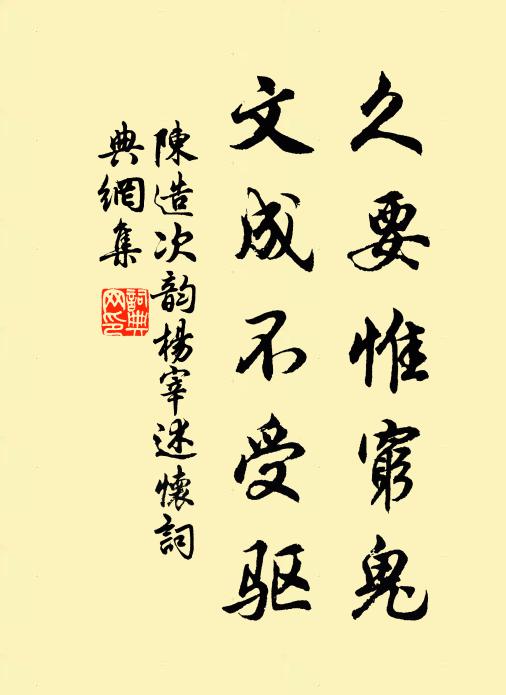 久要惟窮鬼
文成不受驱
陳造次韵楊宰述懷詞
典網集
詞典網印